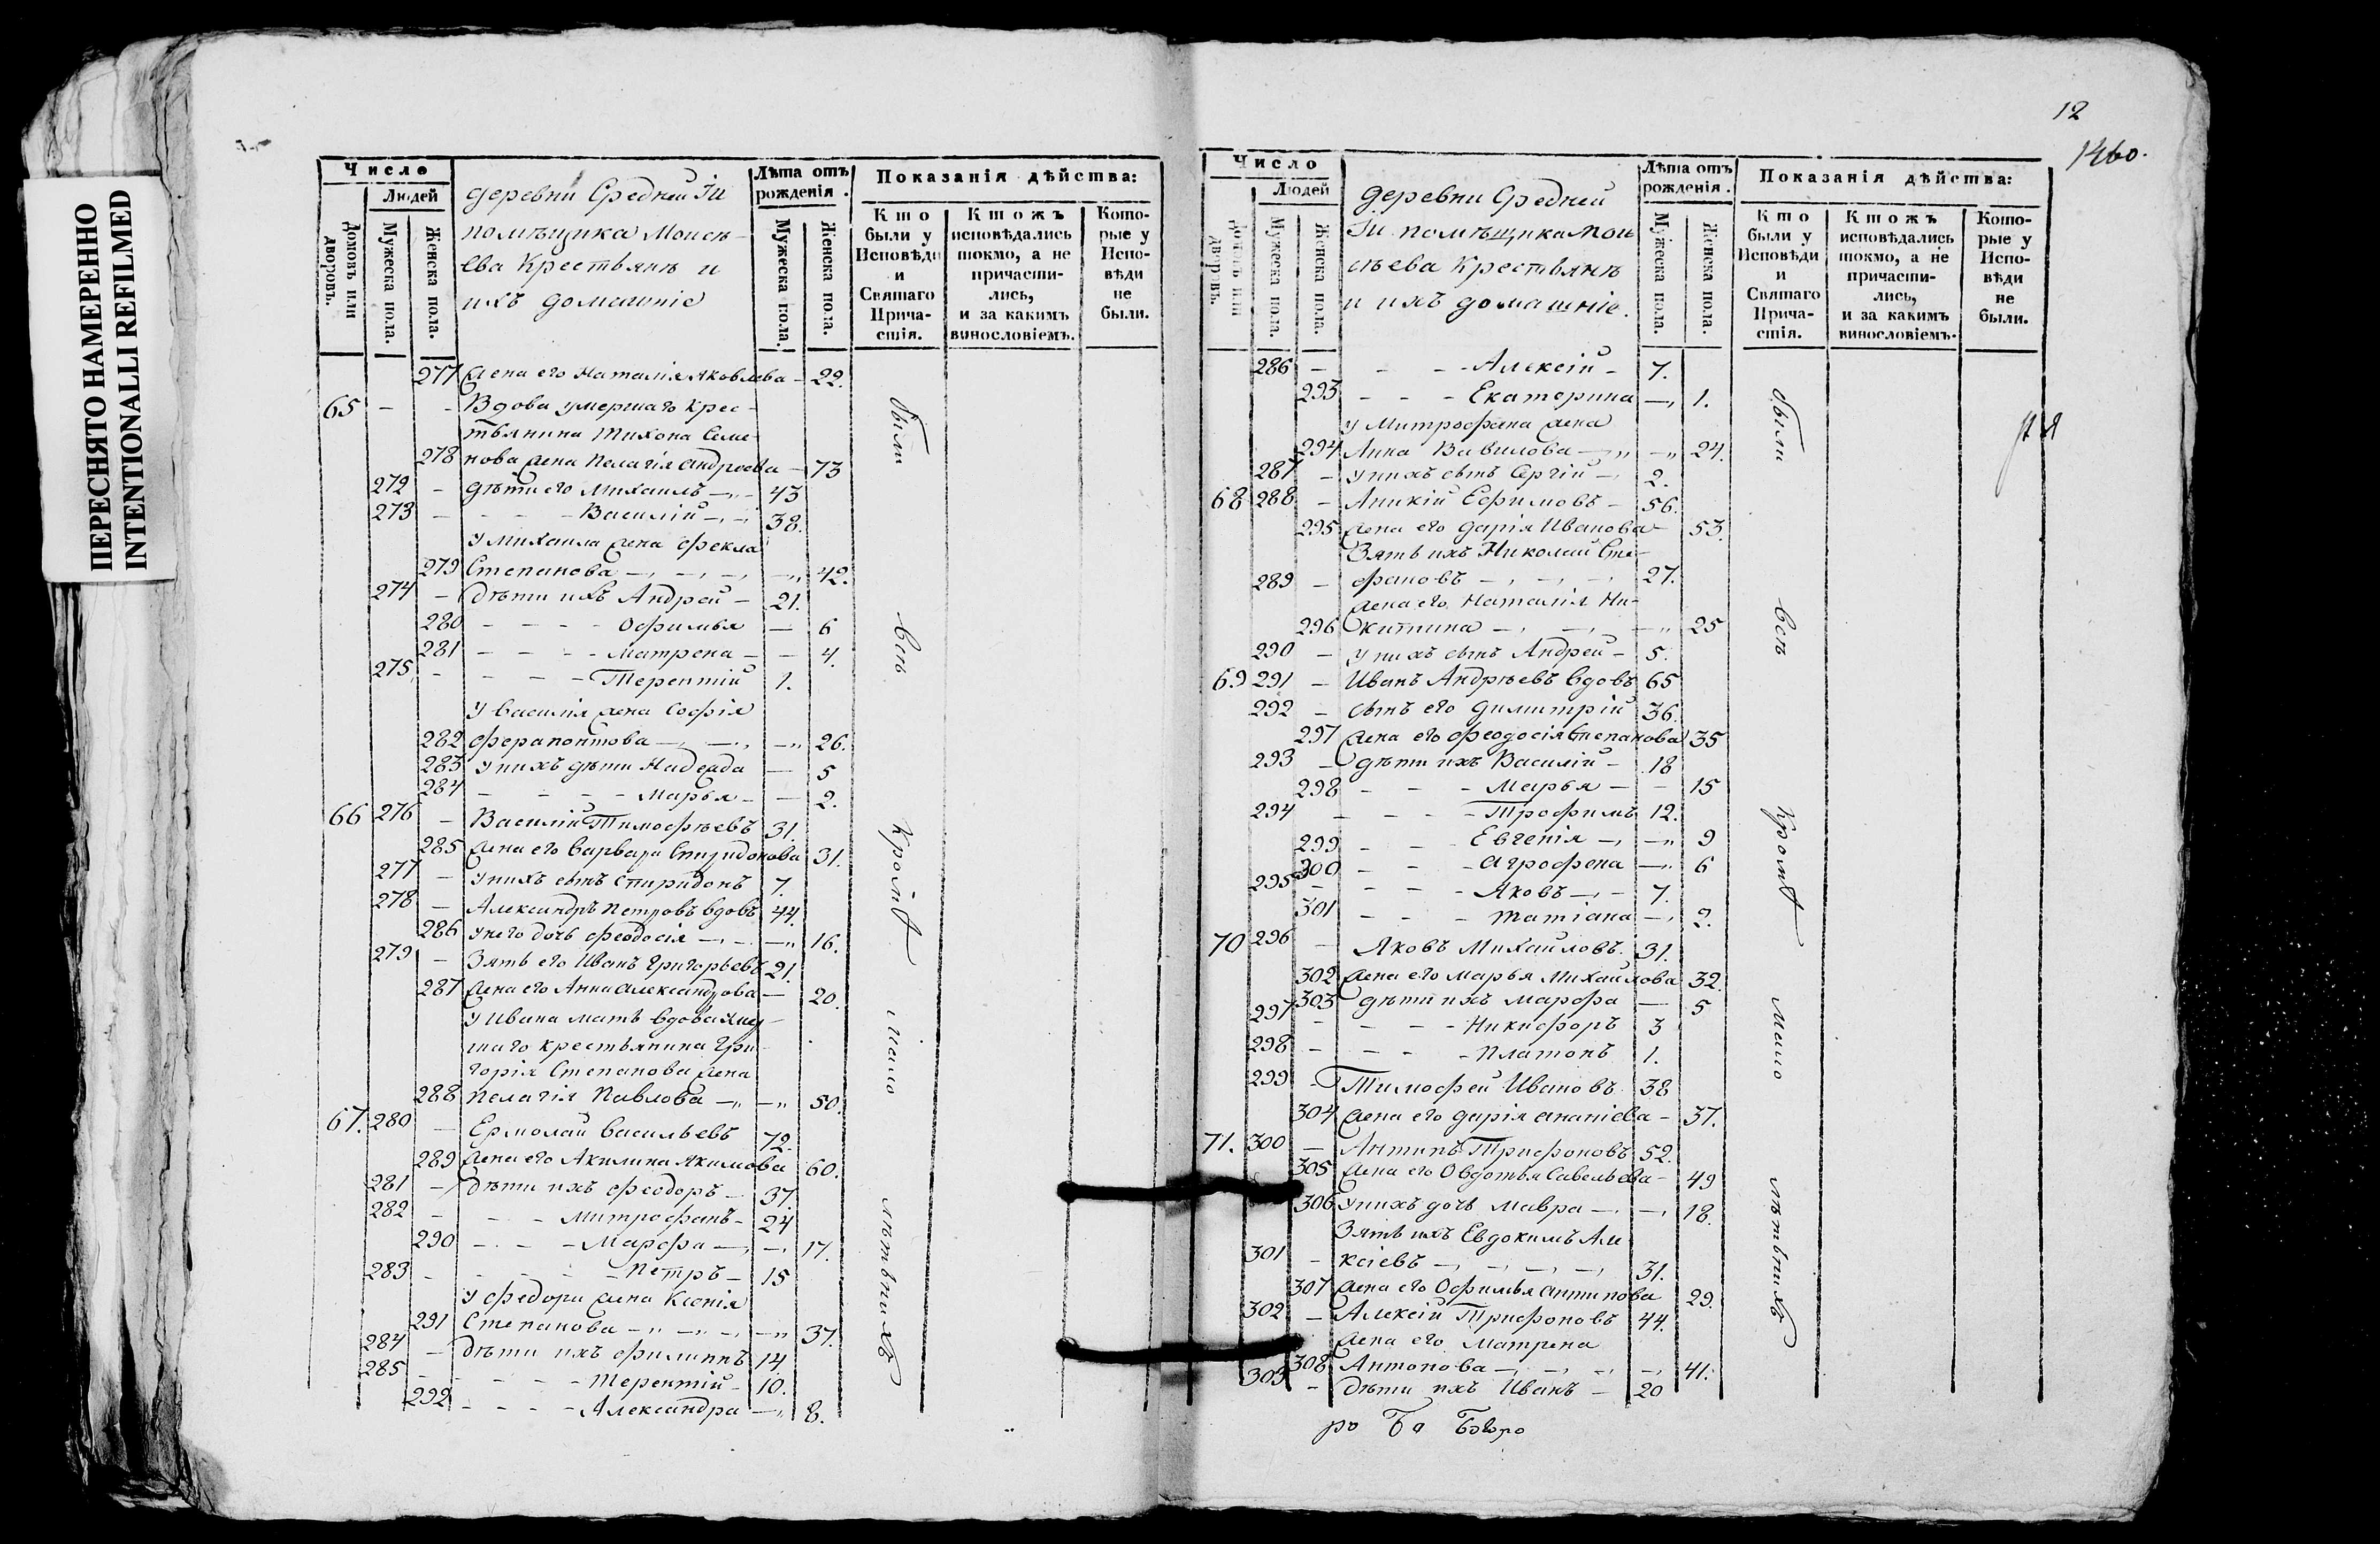 ПЕРЕСНЯТО НАМЕРЕННО
INTENTIONALLI REFILMED
Число
Людей
Домовъ или дворовъ.
Мужеска пола.
Женска пола.
деревни Средней Iи
помѣщика Моисѣ-
ева Крестьянѣ и
ихъ домашніе
Лѣта отъ рожденія.
Мужеска пола.
Женска пола.
Показанія дѣйства:
Кто были у Исповѣди и Святаго Причастія.
Ктожъ исповѣдались токмо, а не причастились, и за какимъ винословіемъ.
Которые у Исповѣди не были.
277 Жена его Наталія Яковлева - 22.
65 - - Вдова умершаго Крес-
тьянина Тихона Семе-
278 нова жена Пелагія Андреева - 73
272 - Дѣти его Михаилъ - 43
273 - - - Василій - 38.
У Михаила жена Фекла
279 Степанова - 42.
274 - Дѣти ихъ Андрей - 21.
280 - - - Офимья - 6
281 - - - Матрена - - 4.
275 - - - Терентій 1.
У Василія жена Софія
282 Ферапонтова - 26.
283 У нихъ дѣти Надежда - 5
284 - - - Марья - - 2.
66 276 - Василій Тимофѣевъ 31.
285 Жена его Варвара Спиридонова 31.
277 - У нихъ сынъ Спиридонъ 7.
278 - Александръ Петровъ вдовъ 44.
286 У него дочь Феодосія - 16.
279 - Зять его Иванъ Григорьевъ 21.
287 Жена его Анна Александрова - 20.
У Ивана мать вдова умер-
шаго крестьянина Гри-
горія Степанова жена
288 Пелагія Павлова - 50.
67. 280 - Ермолай Васильевъ 72.
289 Жена его Акилина Якимова 60.
281 - Дѣти ихъ Феодоръ - 37.
282 - - - Митрофанъ - 24
290 - - - Марфа - 17.
283 - - - Петръ - 15
У Федора жена Ксенія
291 Степанова - 37.
284 - Дѣти ихъ Филиппъ 14.
285 - - - Терентій - 10.
292 - - - Александра - 8.
были
всѣ
Кромѣ
мало
лѣтныхъ
12
1460.
Число
Людей
Домовъ или дворовъ.
Мужеска пола.
Женска пола.
деревни Средней
Iи помѣщика Мои
сѣева Крестьянѣ
и ихъ домашніе.
Лѣта отъ рожденія.
Мужеска пола.
Женска пола.
Показанія дѣйства:
Кто были у Исповѣди и Святаго Причастія.
Ктожъ исповѣдались токмо, а не причастились, и за какимъ винословіемъ.
Которые у Исповѣди не были.
286 - - - Алексій - 7.
293 - - - Екатерина - 1.
У Митрофана жена
294 Анна Вавилова - 24.
287 - У нихъ сынъ Сергій - 2.
68 288 - Аникій Ефимовъ - 56.
295 Жена его Дарія Иванова - 53.
Зять ихъ Николай Сте-
289 - фановъ - 27.
Жена его Наталія Ни-
296 китина - 25
290 - У нихъ сынъ Андрей - 5.
69 291 - Иванъ Андрѣевъ вдовъ 65
292 - Сынъ его Димитрій 36.
297 Жена его Феодосія Степанова 35
293 - Дѣти ихъ Василій - 18
298 - - - Марья - - 15
294 - - - Трофимъ 12.
299 - - - Евгенія - 9
300 - - - Агрофена - 6
295 - - - Яковъ - 7.
301 - - - Татіана - 2.
70 296 - Яковъ Михайловъ 31.
302 Жена его Марья Михайлова 32.
303 Дѣти ихъ Марфа - 5
297 - - - Никифоръ 3
298 - - - Платонъ 1.
299 - Тимофей Ивановъ 38
304 Жена его Дарія Ананіева - 37.
71. 300 - Антипъ Трифоновъ 52.
305 Жена его Овдотья Савельева - 49
306 У нихъ дочь Мавра - 18.
Зять ихъ Евдокимъ Але
301 - ксіевъ - 31.
307 Жена его Офимья Антипова 29.
302 - Алексій Трифоновъ 44.
Жена его Матрена
308 Антонова - 41.
303 - Дѣти ихъ Иванъ - 20
были
всѣ
Кромѣ
мало
лѣтныхъ